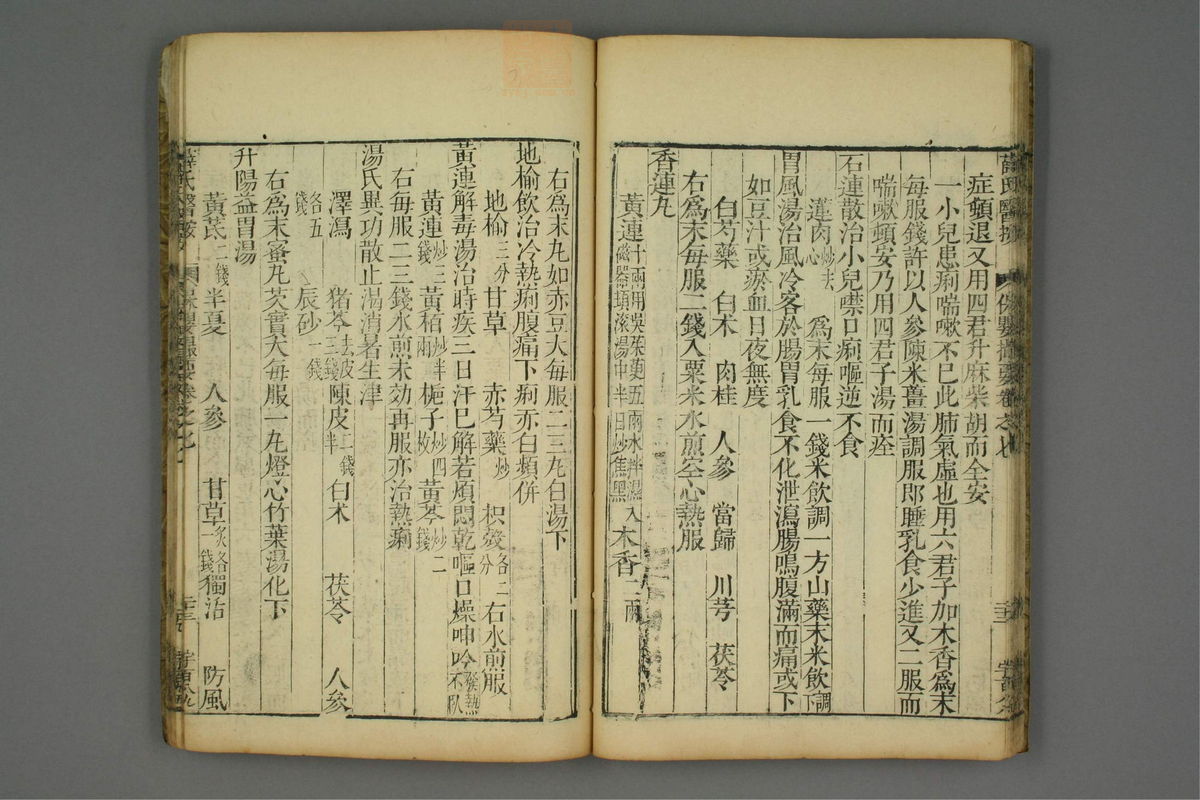 薛氏醫按
保嬰撮要卷之七
症頓退又用四君升麻柴胡而全安
一小兒患痢喘嗽不已此肺氣虛也用六君子加木香爲末
每服錢許以人參陳米薑湯調服卽睡乳食少進又二服而
喘嗽頓安乃用四君子湯而痊
石連散治小兒噤口痢嘔逆不食
蓮肉炒去心 爲末每服一錢米飲調一方山藥末米飲調下
胃風湯治風冷客於腸胃乳食不化泄瀉腸鳴腹滿而痛或下
如豆汁或瘀血日夜無度
白芍藥 白术 肉桂 人參 當歸 川芎 茯苓
右爲末每服二錢入粟米水煎空心熱服
香連丸
黃連十兩用吳茱萸五兩水拌濕入磁器頓滾湯中半日炒焦黑 木香二兩
右爲末丸如赤豆大每服二三丸白湯下
地榆飲治冷熱痢腹痛下痢赤白頻併
地榆三分 甘草 赤芍藥炒 枳殼各二分 右水煎服
黃連解毒湯治時疾三日汗已解若煩悶乾嘔口燥呻吟發熱不臥
黃連炒三錢 黃栢炒半兩 梔子炒四枚 黃芩炒二錢
右每服二三錢水煎未効再服亦治熱痢
湯氏異功散止渴消暑生津
澤瀉 猪苓去皮三錢 陳皮二錢半 白术 茯苓 人參
各五錢 辰砂一錢
右爲末蜜丸芡實大每服一丸燈心竹葉湯化下
升陽益胃湯
黃芪二錢 半夏 人參 甘草炙各一錢 獨活 防風
薛氏醫按
保嬰撮要卷之七